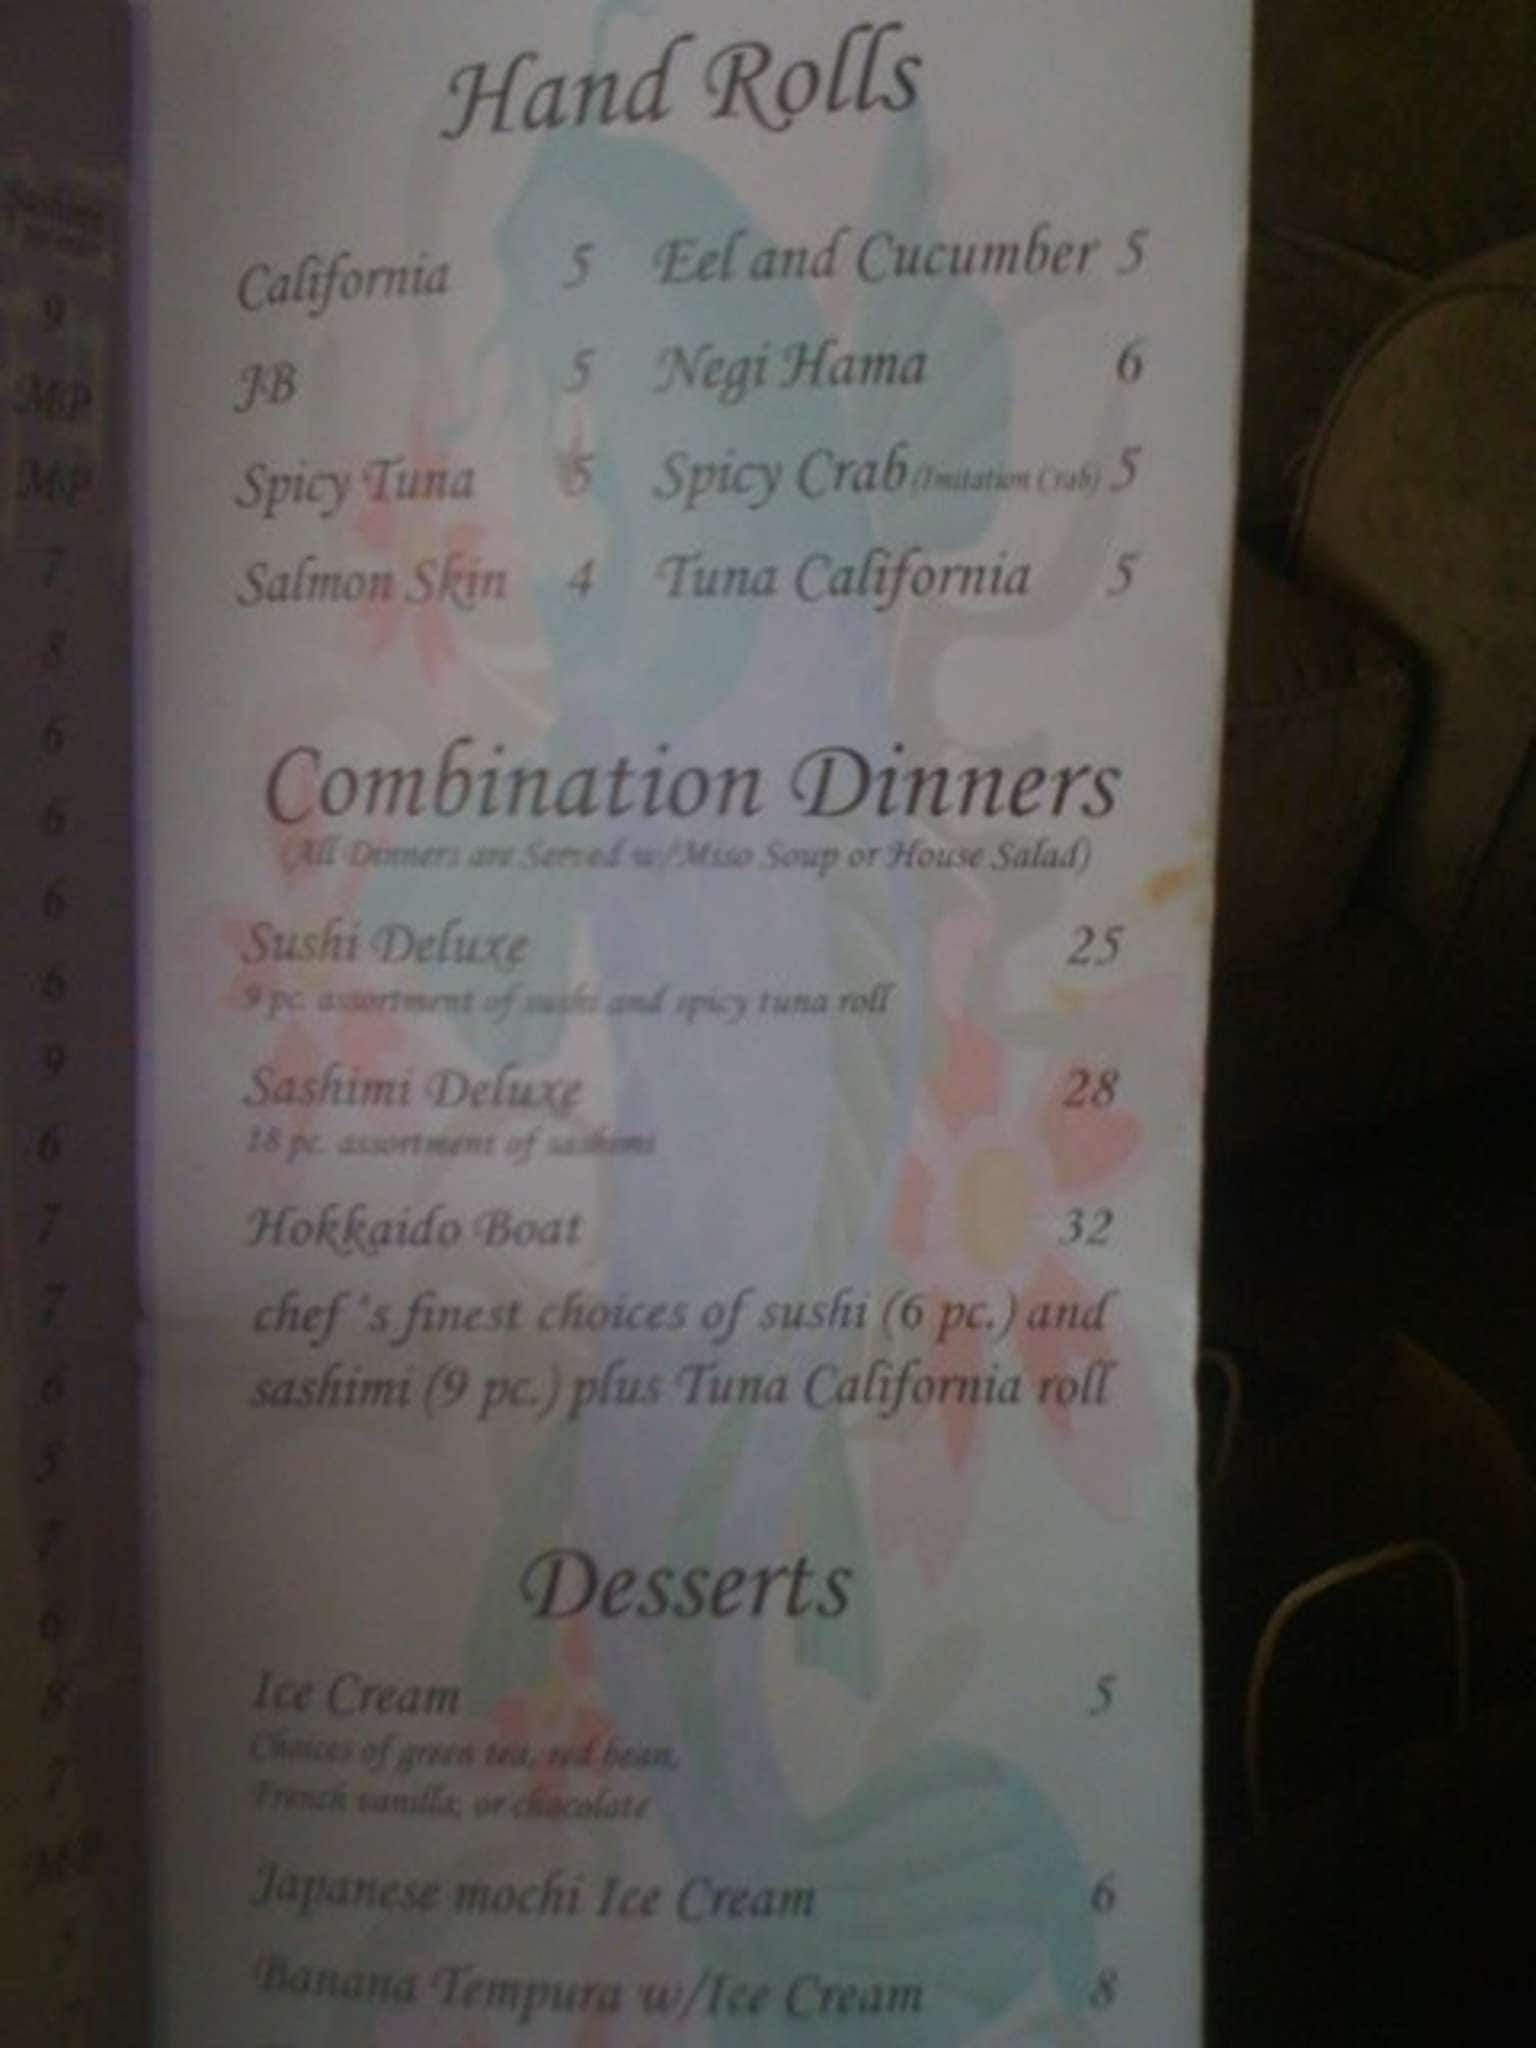 Hand Rolls
California 5 Eel and Cucumber 5
JB 5 Negi Hama 6
Spicy Tuna 5 Spicy Crab (Imitation Crab) 5
Salmon Skin 4 Tuna California 5
Combination Dinners
(All Dinners are Served w/Miso Soup or House Salad)
Sushi Deluxe 25
9 pc. assortment of sushi and spicy tuna roll
Sashimi Deluxe 28
18 pc. assortment of sashimi
Hokkaido Boat 32
chef 's finest choices of sushi (6 pc.) and
sashimi (9 pc.) plus Tuna California roll
Desserts
Ice Cream 5
Choices of green tea, red bean,
French vanilla, or chocolate
Japanese mochi Ice Cream 6
Banana Tempura w/Ice Cream 8
9
MP
MP
7
8
6
6
6
6
9
6
7
7
6
5
7
6
8
7
MP